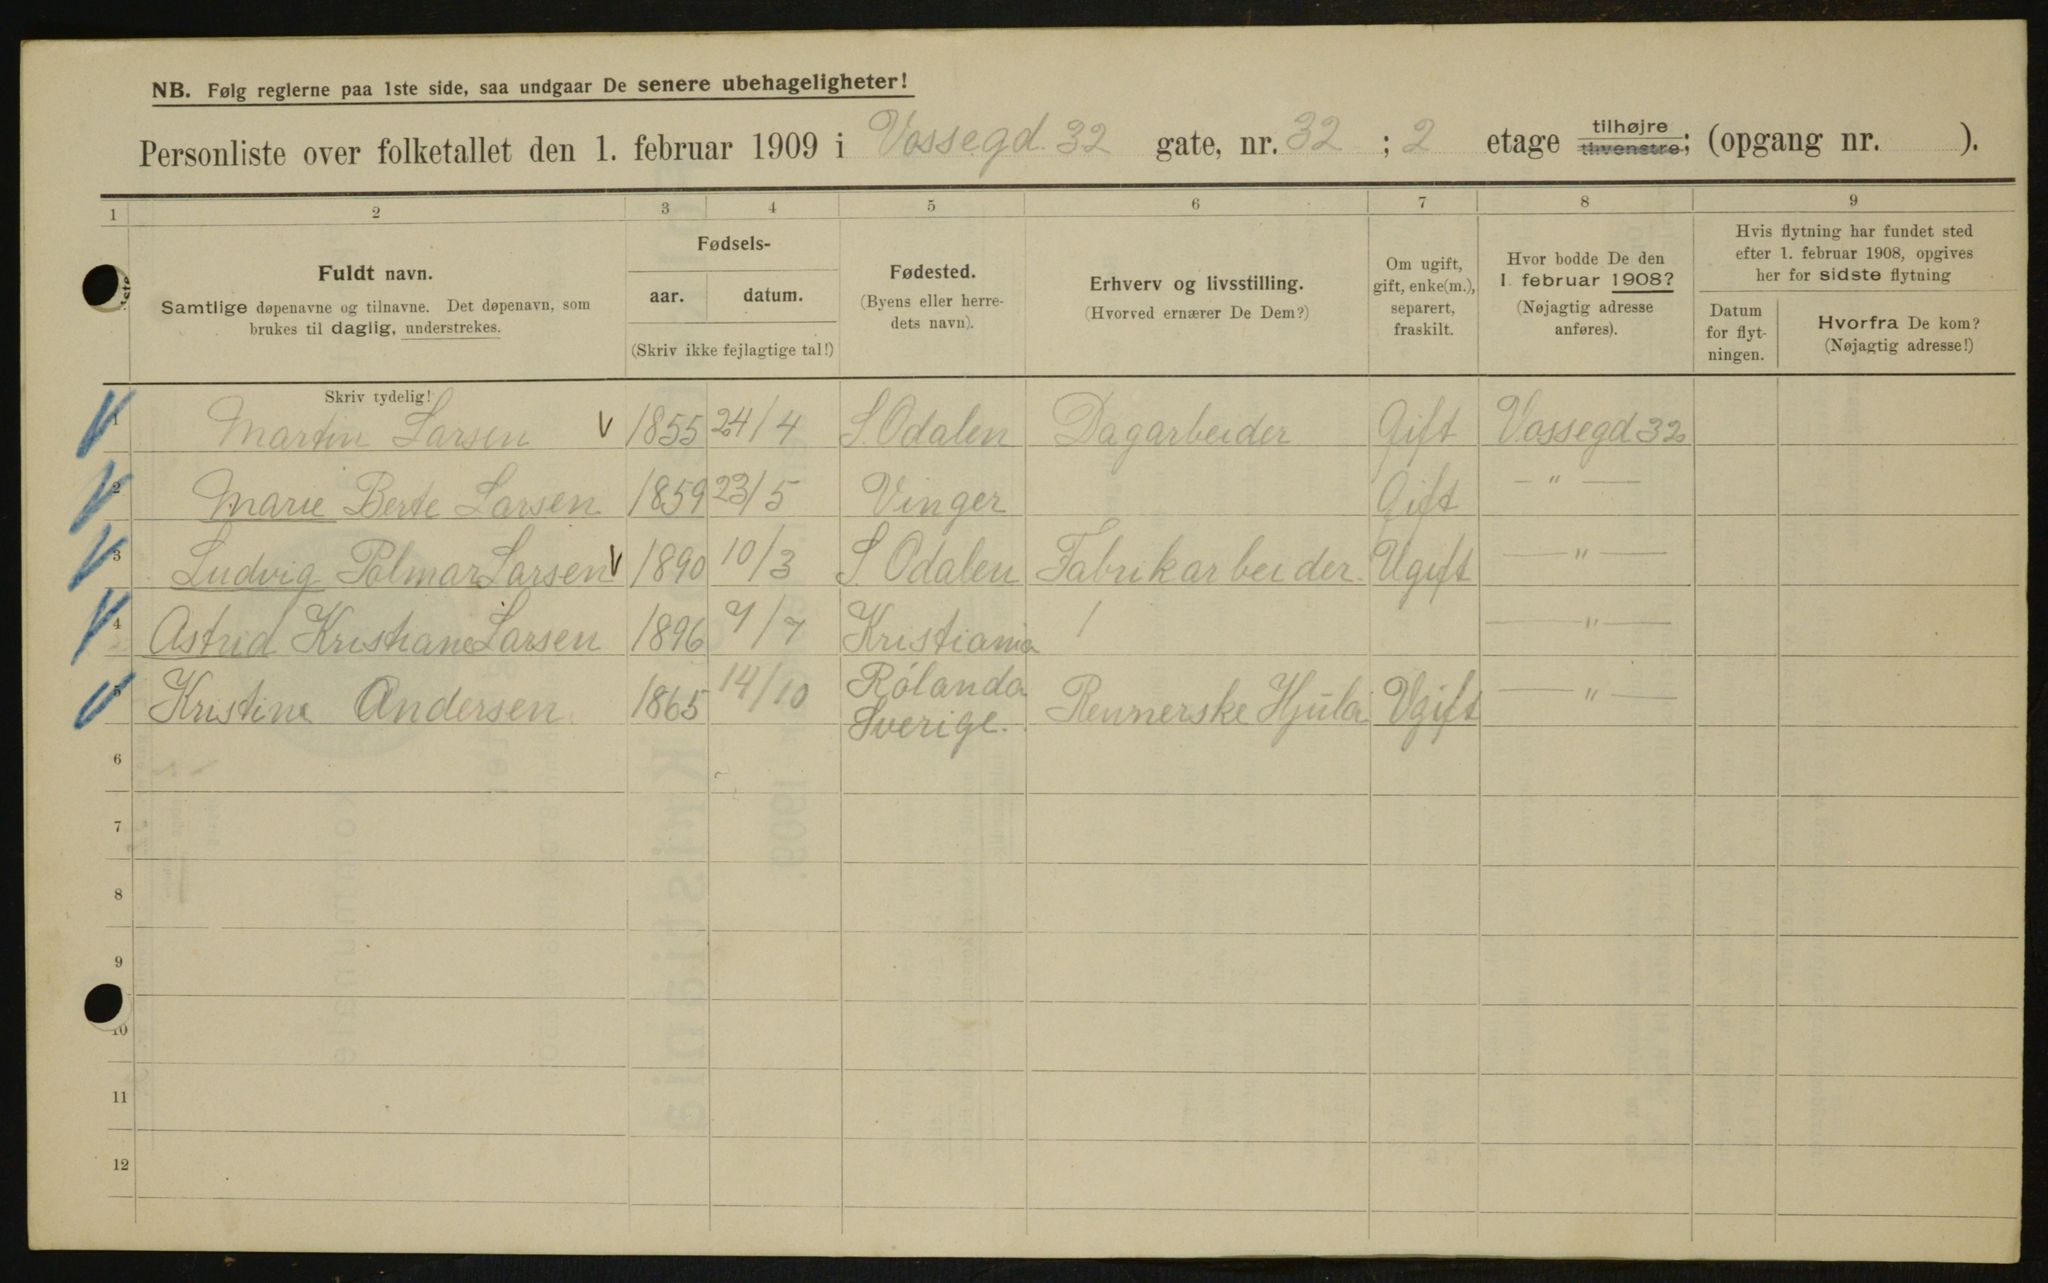 NB. Følg reglerne paa 1ste side, saa undgaar De senere ubehageligheter!
Personliste over folketallet den 1. februar 1909 i Vossegd. 32 gate, nr. 32 ; 2 etage tilhøjre tilvenstre; (opgang nr. ).
1 2 3 4 5 6 7 8 9
Fuldt navn.
Samtlige døpenavne og tilnavne. Det døpenavn, som
brukes til daglig, understrekes.
Fødsels-
aar. datum.
(Skriv ikke fejlagtige tal!)
Fødested.
(Byens eller herre-
dets navn).
Erhverv og livsstilling.
(Hvorved ernærer De Dem?)
Om ugift,
gift, enke(m.),
separert,
fraskilt.
Hvor bodde De den
1. februar 1908?
(Nøjagtig adresse
anføres).
Hvis flytning har fundet sted
efter 1. februar 1908, opgives
her for sidste flytning
Datum
for flyt-
ningen.
Hvorfra De kom?
(Nøjagtig adresse!)
Skriv tydelig!
1 Martin Larsen 1855 24/4 S. Odalen Dagarbeider Gift Vossegd 32
2 Marie Berte Larsen 1859 23/5 Vinger Gift — " —
3 Ludvig Palmar Larsen 1890 10/3 S. Odalen Fabrikarbeider Ugift — " —
4 Astrid Kristiane Larsen 1896 7/7 Kristiania / — " —
5 Kristine Andersen 1865 14/10 Rölanda Sverige. Hjula Ugift — " —
6
7
8
9
10
11
12